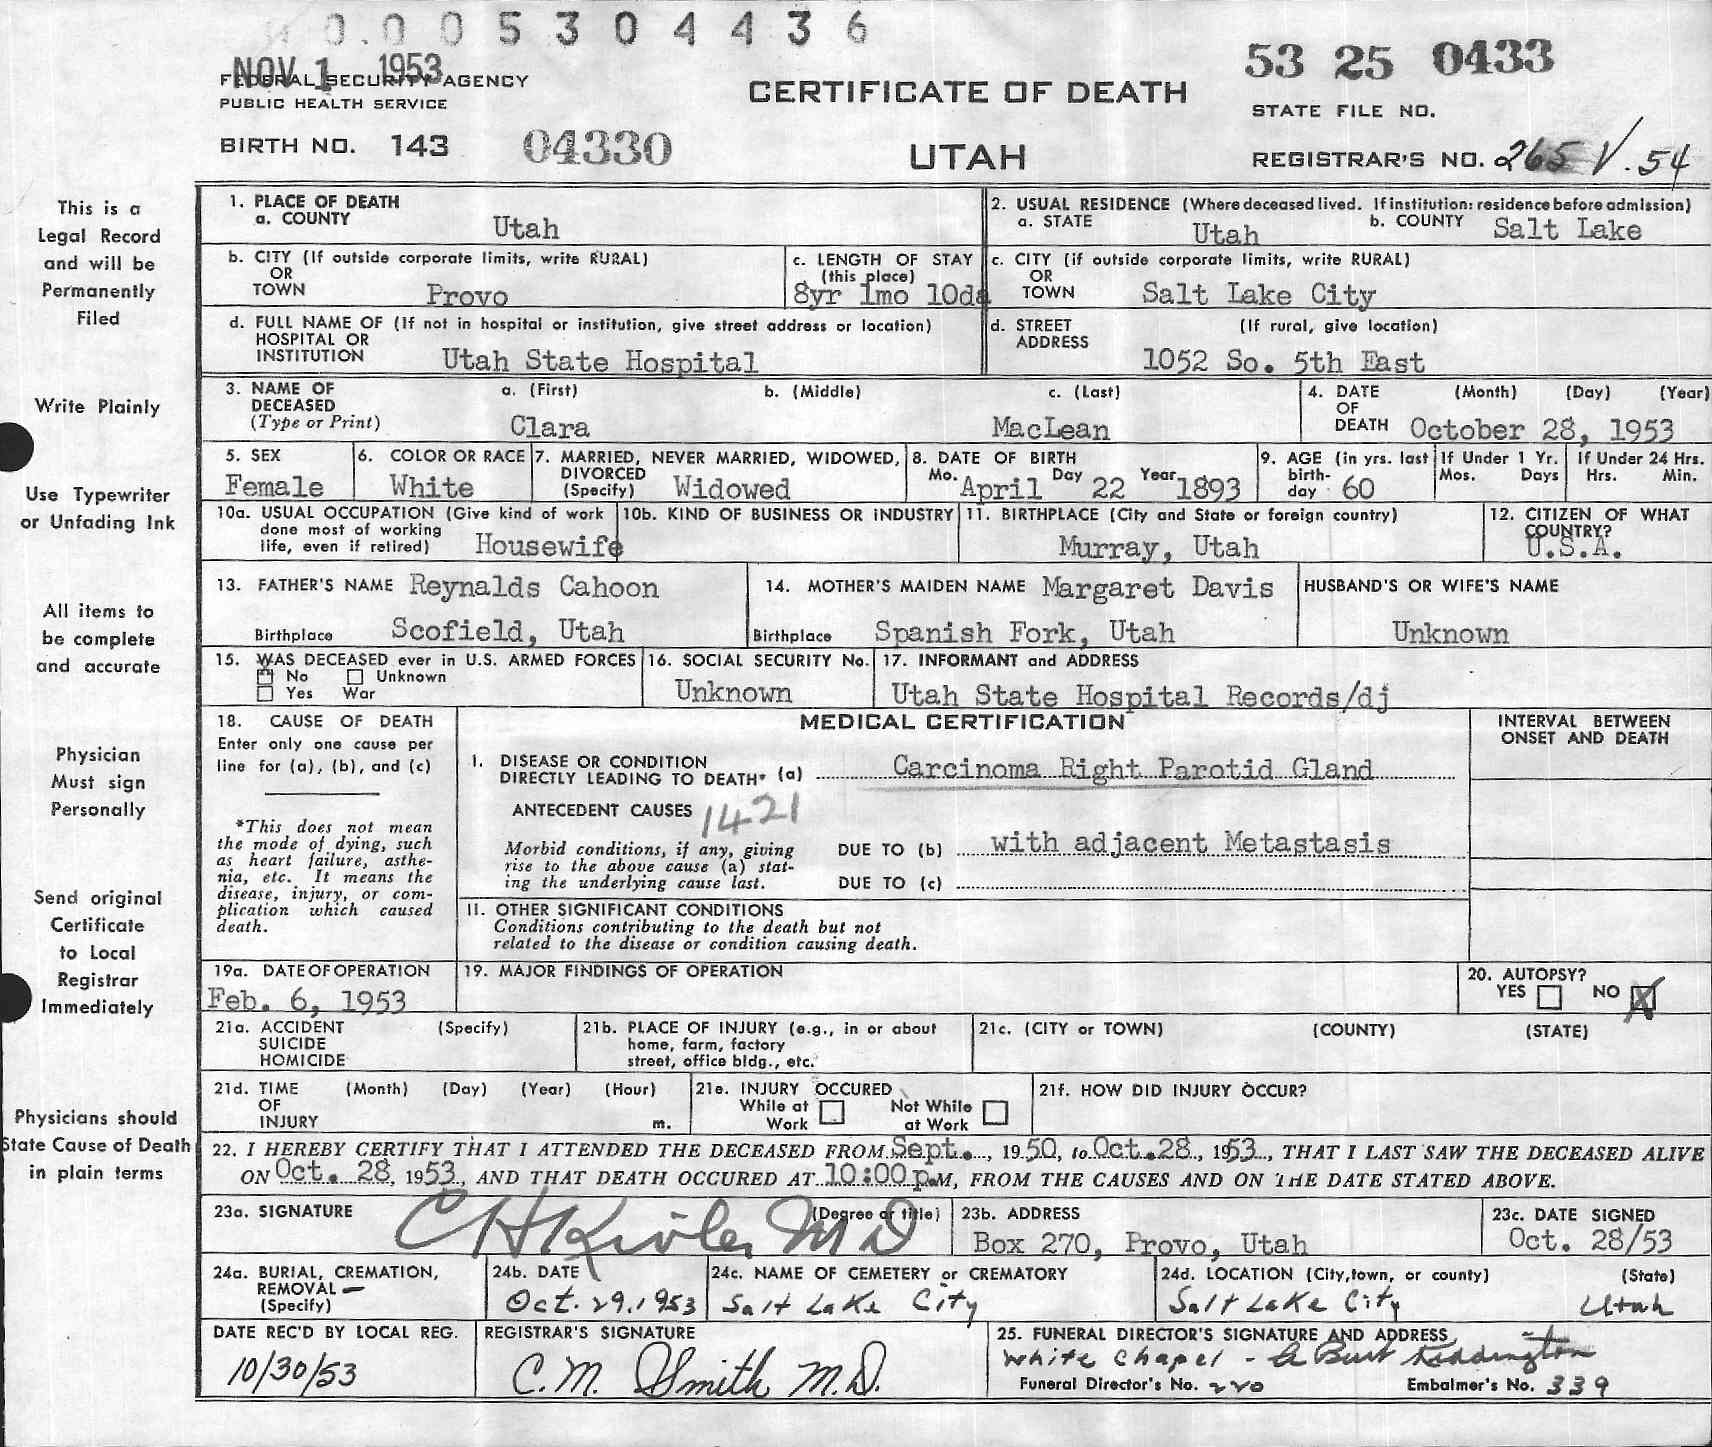 0.0 0 5 3 0 4 4 3 6
NOV 1 1953
53 25 0433
FEDERAL SECURITY AGENCY
PUBLIC HEALTH SERVICE
CERTIFICATE OF DEATH
STATE FILE NO.
BIRTH NO. 143 04330
UTAH
REGISTRAR'S NO. 265 V. 54
This is a
Legal Record
and will be
Permanently
Filed
Write Plainly
Use Typewriter
or Unfading Ink
All items to
be complete
and accurate
Physician
Must sign
Personally
Send original
Certificate
to Local
Registrar
Immediately
Physicians should
State Cause of Death
in plain terms
1. PLACE OF DEATH
a. COUNTY Utah
2. USUAL RESIDENCE (Where deceased lived. If institution: residence before admission)
a. STATE Utah b. COUNTY Salt Lake
b. CITY (If outside corporate limits, write RURAL)
OR
TOWN Provo
c. LENGTH OF STAY
(this place)
8yr 1mo 10da
c. CITY (if outside corporate limits, write RURAL)
OR
TOWN Salt Lake City
d. FULL NAME OF (If not in hospital or institution, give street address or location)
HOSPITAL OR
INSTITUTION Utah State Hospital
d. STREET (If rural, give location)
ADDRESS
1052 So. 5th East
3. NAME OF a. (First) b. (Middle) c. (Last)
DECEASED
(Type or Print) Clara MacLean
4. DATE (Month) (Day) (Year)
OF
DEATH October 28, 1953
5. SEX
Female
6. COLOR OR RACE
White
7. MARRIED, NEVER MARRIED, WIDOWED,
DIVORCED
(Specify) Widowed
8. DATE OF BIRTH
Mo. April Day 22 Year 1893
9. AGE (in yrs. last
birth-
day 60
If Under 1 Yr.
Mos. Days
If Under 24 Hrs.
Hrs. Min.
10a. USUAL OCCUPATION (Give kind of work
done most of working
life, even if retired) Housewife
10b. KIND OF BUSINESS OR INDUSTRY
11. BIRTHPLACE (City and State or foreign country)
Murray, Utah
12. CITIZEN OF WHAT
COUNTRY?
U.S.A.
13. FATHER'S NAME Reynalds Cahoon
Birthplace Scofield, Utah
14. MOTHER'S MAIDEN NAME Margaret Davis
Birthplace Spanish Fork, Utah
HUSBAND'S OR WIFE'S NAME
Unknown
15. WAS DECEASED ever in U.S. ARMED FORCES
No Unknown
Yes War
16. SOCIAL SECURITY No.
Unknown
17. INFORMANT and ADDRESS
Utah State Hospital Records/dj
18. CAUSE OF DEATH
Enter only one cause per
line for (a), (b), and (c)
*This does not mean
the mode of dying, such
as heart failure, asthe-
nia, etc. It means the
disease, injury, or com-
plication which caused
death.
MEDICAL CERTIFICATION
INTERVAL BETWEEN
ONSET AND DEATH
I. DISEASE OR CONDITION
DIRECTLY LEADING TO DEATH* (a) Carcinoma Right Parotid Gland
ANTECEDENT CAUSES 1421
Morbid conditions, if any, giving
rise to the above cause (a) stat-
ing the underlying cause last.
DUE TO (b) with adjacent Metastasis
DUE TO (c)
II. OTHER SIGNIFICANT CONDITIONS
Conditions contributing to the death but not
related to the disease or condition causing death.
19a. DATE OF OPERATION
Feb. 6, 1953
19. MAJOR FINDINGS OF OPERATION
20. AUTOPSY?
YES NO X
21a. ACCIDENT (Specify)
SUICIDE
HOMICIDE
21b. PLACE OF INJURY (e.g., in or about
home, farm, factory
street, office bldg., etc.
21c. (CITY or TOWN) (COUNTY) (STATE)
21d. TIME (Month) (Day) (Year) (Hour)
OF
INJURY m.
21e. INJURY OCCURED
While at Work Not While at Work
21f. HOW DID INJURY OCCUR?
22. I HEREBY CERTIFY THAT I ATTENDED THE DECEASED FROM Sept., 1950, to Oct. 28, 1953, THAT I LAST SAW THE DECEASED ALIVE
ON Oct. 28, 1953, AND THAT DEATH OCCURED AT 10:00 p.M, FROM THE CAUSES AND ON THE DATE STATED ABOVE.
23a. SIGNATURE (Degree or title)
M D
23b. ADDRESS
Box 270, Provo, Utah
23c. DATE SIGNED
Oct. 28/53
24a. BURIAL, CREMATION,
REMOVAL —
(Specify)
24b. DATE
Oct. 29, 1953
24c. NAME OF CEMETERY or CREMATORY
Salt Lake City
24d. LOCATION (City, town, or county) (State)
Salt Lake City Utah
DATE REC'D BY LOCAL REG.
10/30/53
REGISTRAR'S SIGNATURE
C.M. Smith M.D.
25. FUNERAL DIRECTOR'S SIGNATURE AND ADDRESS
White Chapel -
Funeral Director's No. 220 Embalmer's No. 339